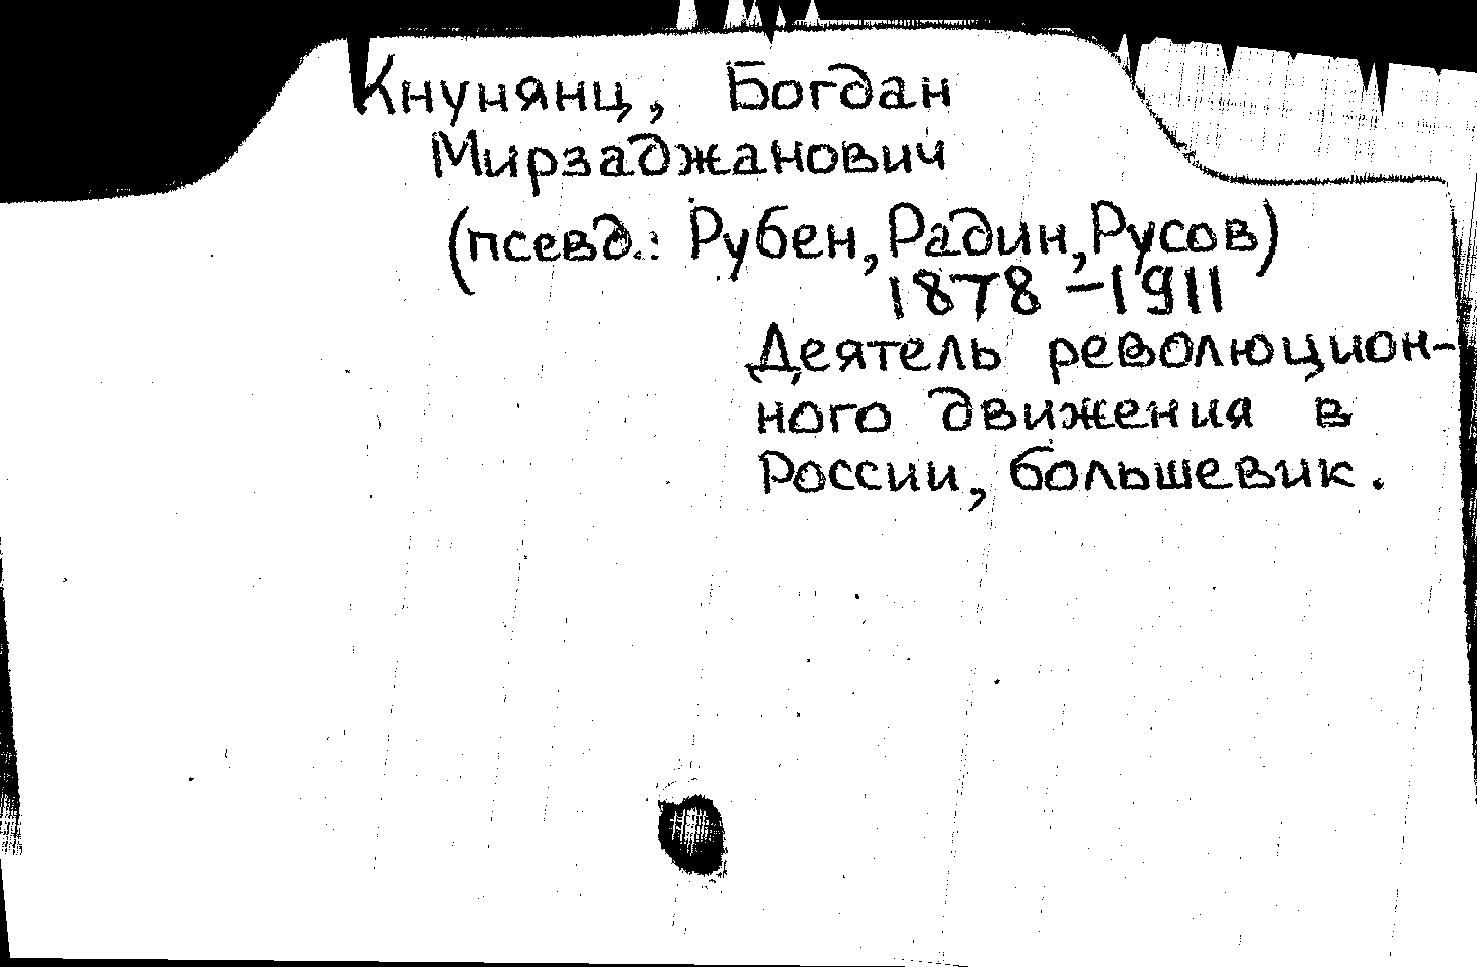 Кнунянц, Богдан
Мирзаджанович
(псевд.: Рубен, Радин, Русов)
1878-1911
Деятель революцион-
ного движения в
России, большевик.